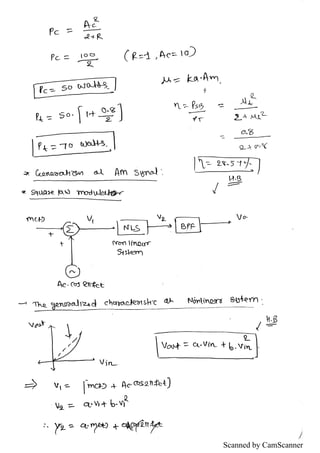 Pc = Ac² / 2*R
Pc = 100 / 2 (R=1, Ac=10)
Pc = 50 watts.
μ = ka.Am.
Pt = 50. [1+ 0.8/2]
η = PSB / PT = μt² / 2+μt²
= 0.8 / 2+0.8
Pt = 70 watts.
η = 28.57%
H.B
* Generation of Am Signal:
* Square law modulator
m(t) V₁ V₂ Vo
+ Σ NLS BPF
+ Non linear System
Ac.cos 2πfct
→ The generalized characteristic of Nonlinear System:
H.B
Vout
Vout = a.Vin + b.Vin²
Vin
⇒ V₁ = [m(t) + Ac cos2πfct]
V₂ = a.V₁ + b.V₁²
∴ V₂ = a.m(t) +
Scanned by CamScanner